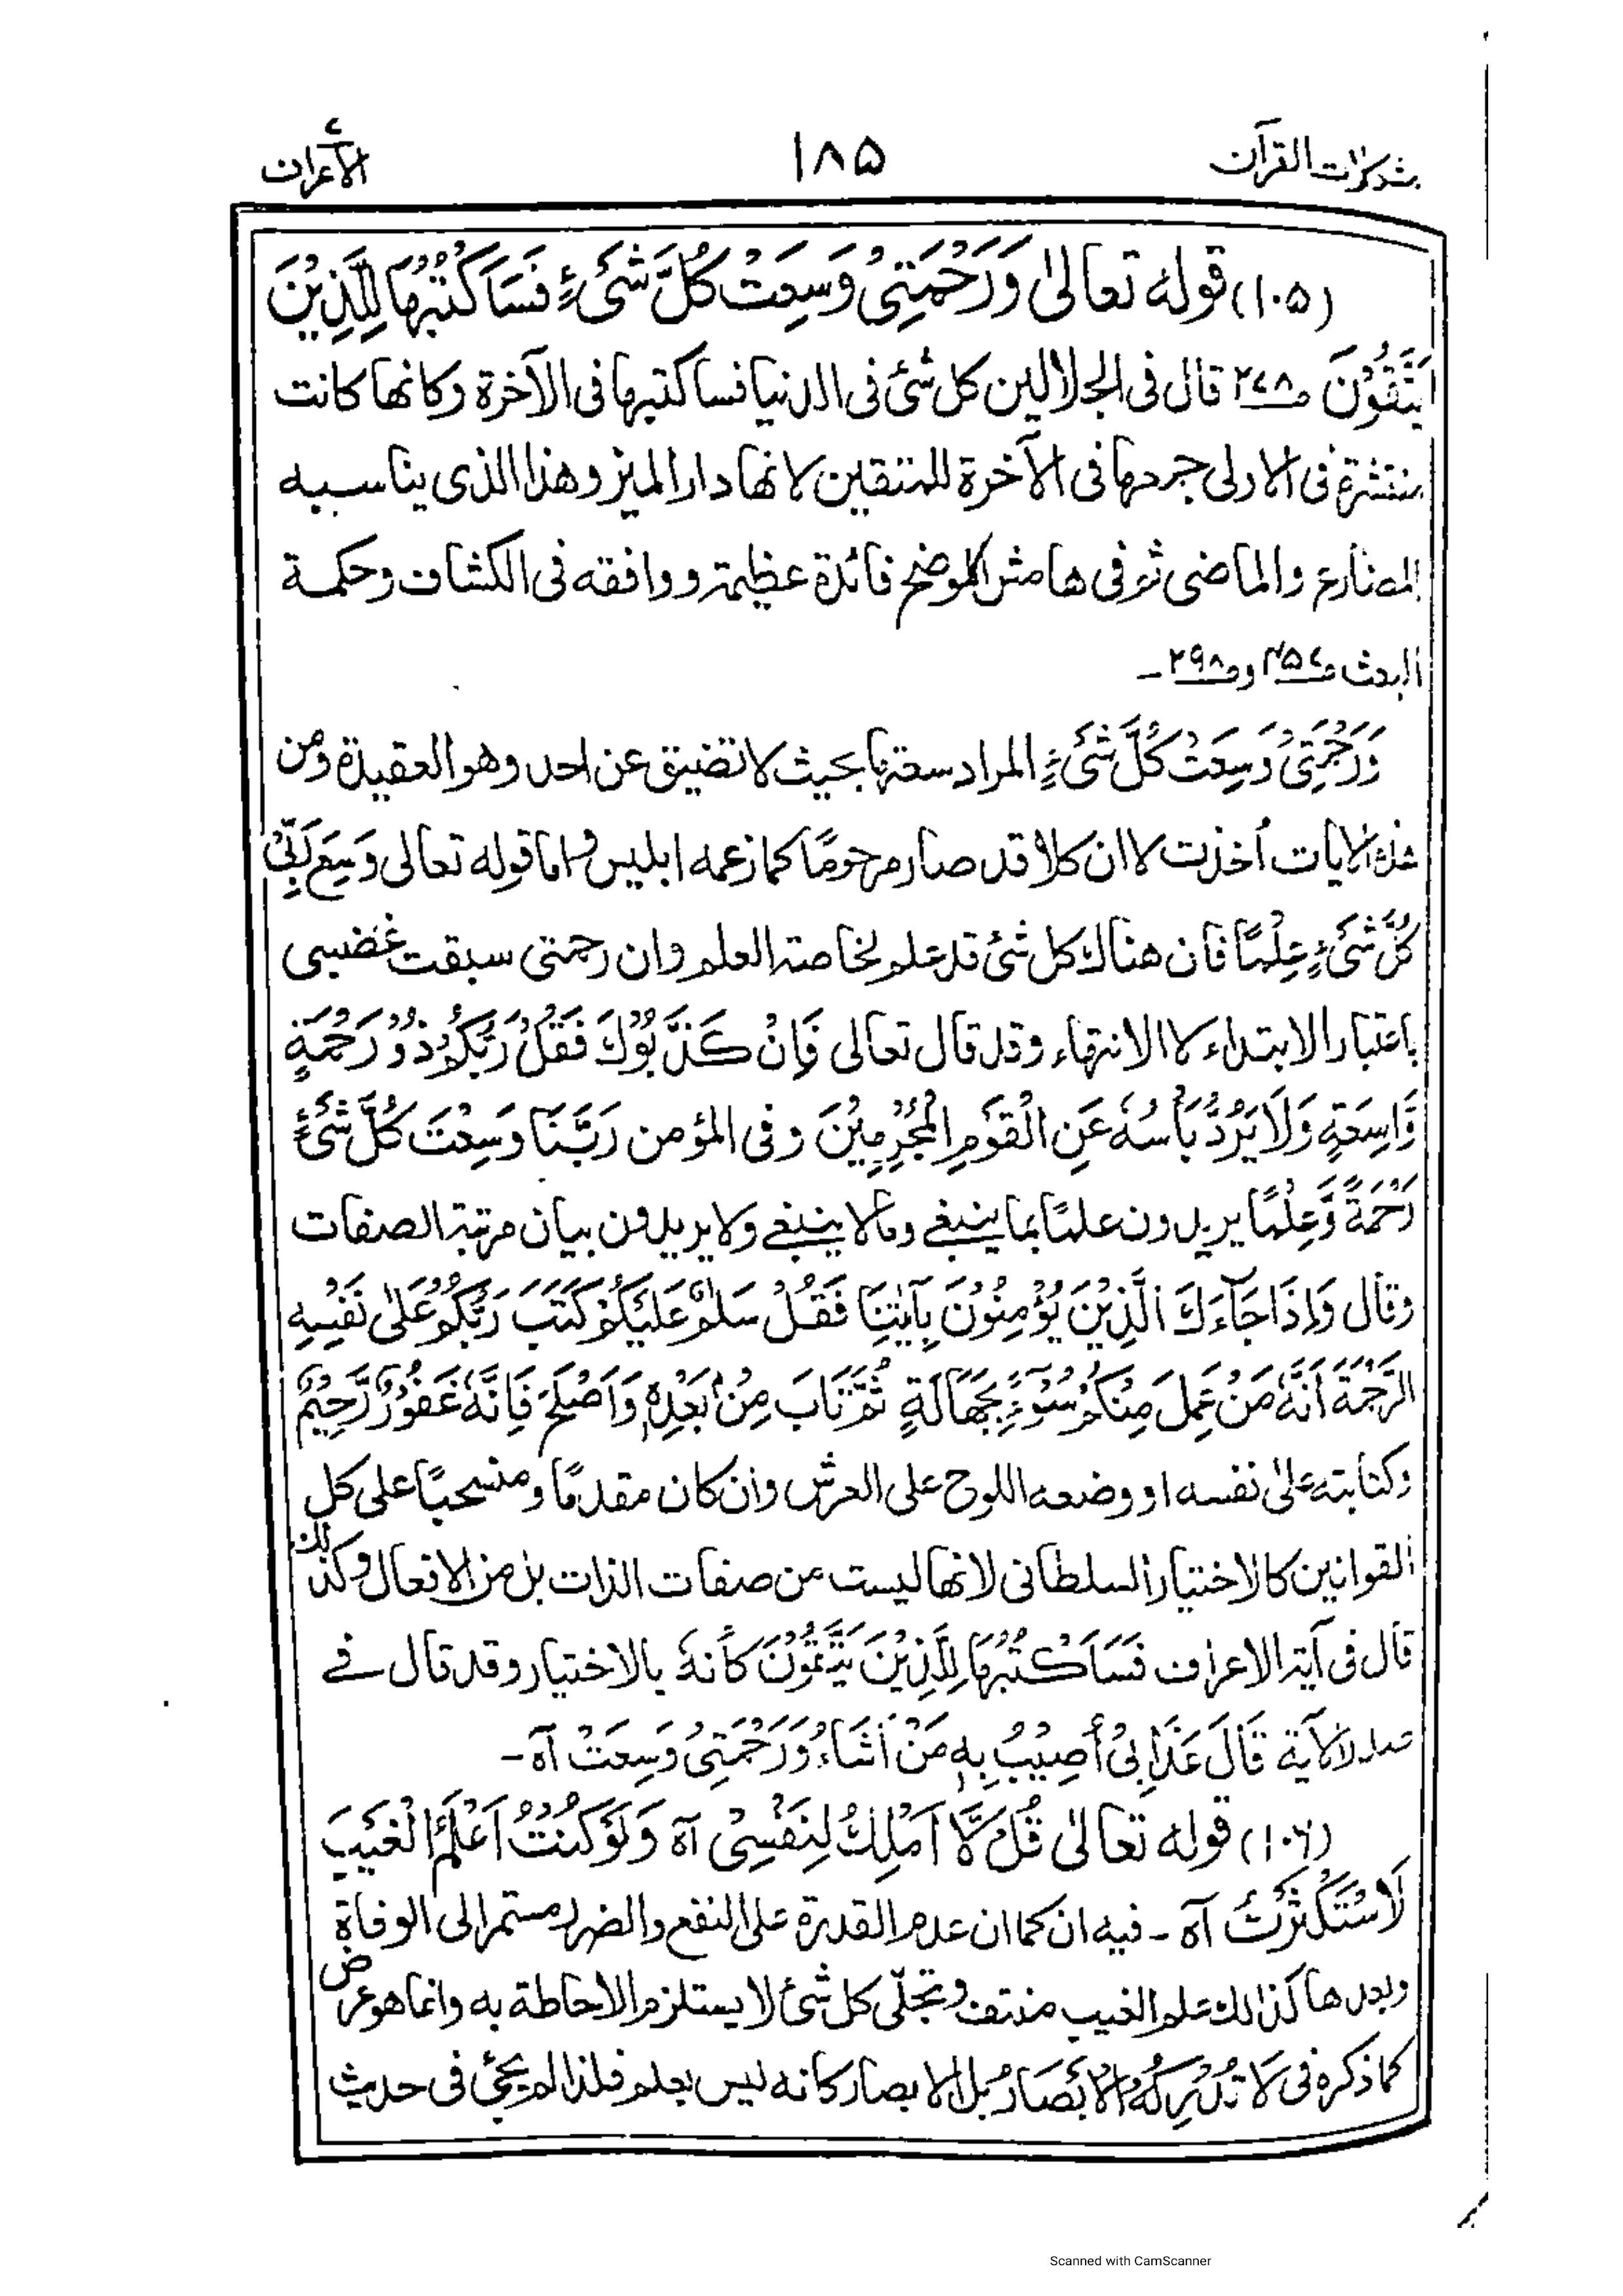 مشكلات القرآن ١٨٥ الأعراف
(١٠٥) قوله تعالىٰ وَرَحْمَتِيْ وَسِعَتْ كُلَّ شَيْءٍ فَسَاَكْتُبُهَا لِلَّذِيْنَ
يَتَّقُوْنَ ص٢٧٨ قال فى الجلالين كل شئ فى الدنيا فساكتبها فى الآخرة وكانها كانت
منتشرة فى الاولى جردها فى الآخرة للمتقين لانها دار الميز وهذا الذى يناسبه
المضارع والماضى ثم فى هامش الموضح فائدة عظيمة ووافقه فى الكشاف وحكمة
البعث ص٤٥٧ وص٢٩٨ -
وَرَحْمَتِيْ وَسِعَتْ كُلَّ شَيْءٍ المراد سعتها بحيث لا تضيق عن احد وهو العقيدة ومن
هذه الايات أخذت لا ان كلا قد صار مرحومًا كما زعمه ابليس واما قوله تعالى وَسِعَ رَبِّيْ
كُلَّ شَيْءٍ عِلْمًا فان هناك كل شئ قد علم لخاصة العلم وان رحمتى سبقت غضبى
باعتبار الابتداء لا الانتهاء وقد قال تعالى فَاِنْ كَذَّبُوْكَ فَقُلْ رَبُّكُمْ ذُوْ رَحْمَةٍ
وَّاسِعَةٍ وَلَا يُرَدُّ بَأْسُهٗ عَنِ الْقَوْمِ الْمُجْرِمِيْنَ وفى المؤمن رَبَّنَا وَسِعْتَ كُلَّ شَيْءٍ
رَحْمَةً وَّعِلْمًا يريدون علمًا بما ينبغي ومالا ينبغي ولا يريدون بيان مرتبة الصفات
وقال وَاِذَا جَآءَكَ الَّذِيْنَ يُؤْمِنُوْنَ بِآيٰتِنَا فَقُلْ سَلٰمٌ عَلَيْكُمْ كَتَبَ رَبُّكُمْ عَلٰى نَفْسِهِ
الرَّحْمَةَ اَنَّهٗ مَنْ عَمِلَ مِنْكُمْ سُوْٓءًۢ بِجَهَالَةٍ ثُمَّ تَابَ مِنْۢ بَعْدِهٖ وَاَصْلَحَ فَاِنَّهٗ غَفُوْرٌ رَّحِيْمٌ
وكتابته علىٰ نفسه او وضعه اللوح على العرش وان كان مقدمًا ومنسحبًا على كل
القوانين كالاختيار السلطانى لانها ليست من صفات الذات بل من الافعال وكذلك
قال فى آية الاعراف فَسَاَكْتُبُهَا لِلَّذِيْنَ يَتَّقُوْنَ كأنهٗ بالاختيار وقد قال في
صدر الآية قَالَ عَذَابِيْ أُصِيْبُ بِهٖ مَنْ اَشَاءُ وَرَحْمَتِيْ وَسِعَتْ آه -
(١٠٦) قوله تعالىٰ قُلْ لَّا اَمْلِكُ لِنَفْسِيْ آه وَلَوْ كُنْتُ اَعْلَمُ الْغَيْبَ
لَاسْتَكْثَرْتُ آه - فيه ان كما ان عدم القدرة على النفع والضرر مستمر الى الوفاة
وبعدها كذالك علم الغيب منتف وتجلّى كل شئ لا يستلزم الاحاطة به وانما هو عرض
كما ذكره فى لَا تُدْرِكُهُ الْاَبْصَارُ بل الابصار كانه ليس بعلم فلذا لم يجئ فى حديث
Scanned with CamScanner